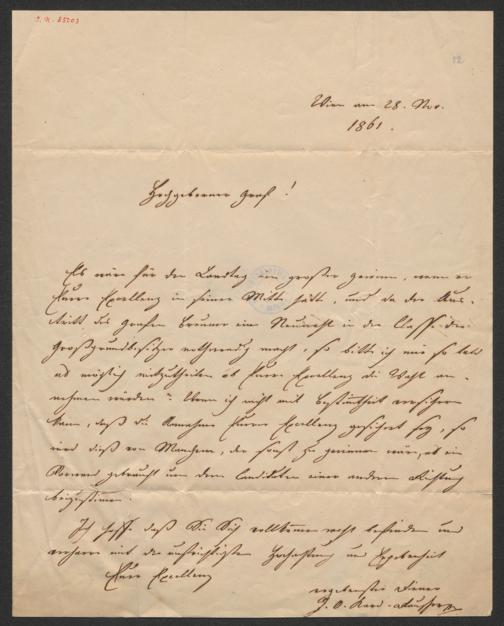 J. N. 65503
12
Wien am 28. Nov.
1861.
Hochgeborner Graf!
Es wäre für den Landtag ein großer Gewinn, wenn er
Euere Excellenz in seiner Mitte hätte, und da der Aus-
tritt des Grafen Brunner eine Neuwahl in der Classe der
Großgrundbesitzer nothwendig macht, so bitte ich mir so bald
als möglich mitzutheilen ob Euere Excellenz die Wahl an-
nehmen würden? Wenn ich nicht mit Bestimtheit versichern
kann, daß die Annahme Euerer Excellenz gesichert sey, so
wird dieß von Manchem, der sonst zu gewinnen wäre, als ein
Vorwand gebraucht um dem Candidaten einer anderen Richtung
beizustimmen.
Ich hoffe daß Sie Sich vollkommen wohl befinden und
verharre mit der aufrichtigsten Hochachtung und Ergebenheit
Euere Excellenz
ergebenster Diener
J. O. Card.